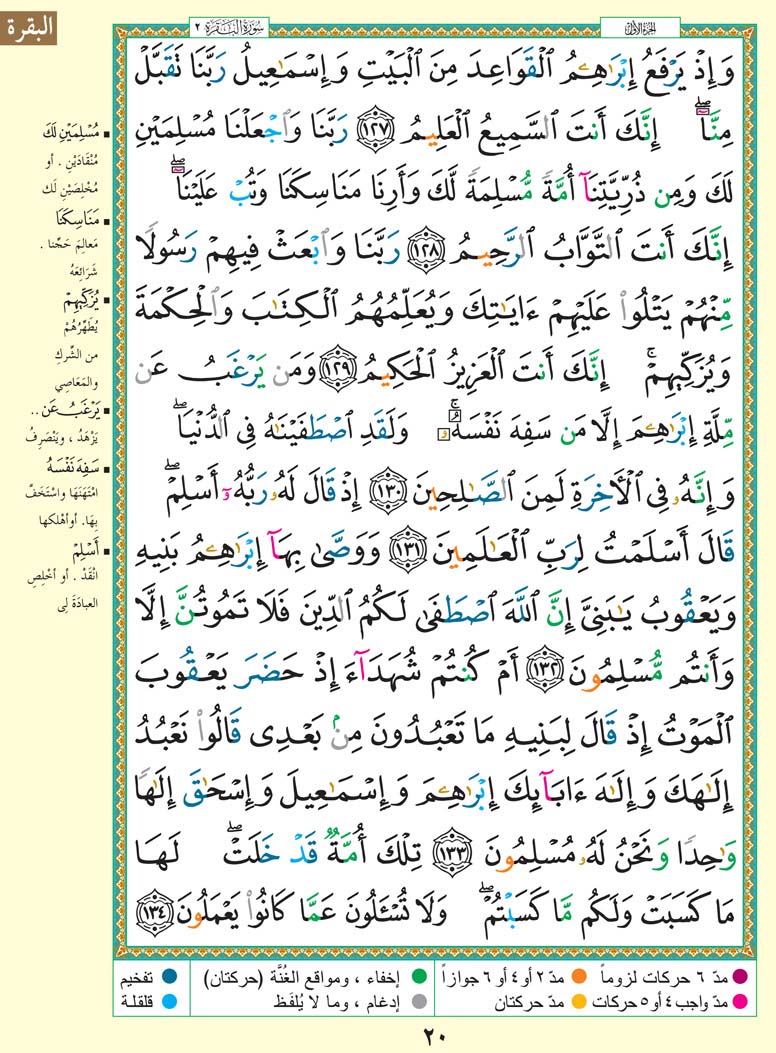 البقرة
سُورَةُ البَقَرَةِ ٢
الجزء الأول
وَإِذْ يَرْفَعُ إِبْرَٰهِـۧمُ ٱلْقَوَاعِدَ مِنَ ٱلْبَيْتِ وَإِسْمَـٰعِيلُ رَبَّنَا تَقَبَّلْ
مِنَّآ ۖ إِنَّكَ أَنتَ ٱلسَّمِيعُ ٱلْعَلِيمُ ﴿١٢٧﴾ رَبَّنَا وَٱجْعَلْنَا مُسْلِمَيْنِ
لَكَ وَمِن ذُرِّيَّتِنَآ أُمَّةً مُّسْلِمَةً لَّكَ وَأَرِنَا مَنَاسِكَنَا وَتُبْ عَلَيْنَآ ۖ
إِنَّكَ أَنتَ ٱلتَّوَّابُ ٱلرَّحِيمُ ﴿١٢٨﴾ رَبَّنَا وَٱبْعَثْ فِيهِمْ رَسُولًا
مِّنْهُمْ يَتْلُوا۟ عَلَيْهِمْ ءَايَـٰتِكَ وَيُعَلِّمُهُمُ ٱلْكِتَـٰبَ وَٱلْحِكْمَةَ
وَيُزَكِّيهِمْ ۚ إِنَّكَ أَنتَ ٱلْعَزِيزُ ٱلْحَكِيمُ ﴿١٢٩﴾ وَمَن يَرْغَبُ عَن
مِّلَّةِ إِبْرَٰهِـۧمَ إِلَّا مَن سَفِهَ نَفْسَهُۥ ۚ وَلَقَدِ ٱصْطَفَيْنَـٰهُ فِى ٱلدُّنْيَا ۖ
وَإِنَّهُۥ فِى ٱلْـَٔاخِرَةِ لَمِنَ ٱلصَّـٰلِحِينَ ﴿١٣٠﴾ إِذْ قَالَ لَهُۥ رَبُّهُۥٓ أَسْلِمْ ۖ
قَالَ أَسْلَمْتُ لِرَبِّ ٱلْعَـٰلَمِينَ ﴿١٣١﴾ وَوَصَّىٰ بِهَآ إِبْرَٰهِـۧمُ بَنِيهِ
وَيَعْقُوبُ يَـٰبَنِىَّ إِنَّ ٱللَّهَ ٱصْطَفَىٰ لَكُمُ ٱلدِّينَ فَلَا تَمُوتُنَّ إِلَّا
وَأَنتُم مُّسْلِمُونَ ﴿١٣٢﴾ أَمْ كُنتُمْ شُهَدَآءَ إِذْ حَضَرَ يَعْقُوبَ
ٱلْمَوْتُ إِذْ قَالَ لِبَنِيهِ مَا تَعْبُدُونَ مِنۢ بَعْدِى قَالُوا۟ نَعْبُدُ
إِلَـٰهَكَ وَإِلَـٰهَ ءَابَآئِكَ إِبْرَٰهِـۧمَ وَإِسْمَـٰعِيلَ وَإِسْحَـٰقَ إِلَـٰهًا
وَٰحِدًا وَنَحْنُ لَهُۥ مُسْلِمُونَ ﴿١٣٣﴾ تِلْكَ أُمَّةٌ قَدْ خَلَتْ ۖ لَهَا
مَا كَسَبَتْ وَلَكُم مَّا كَسَبْتُمْ ۖ وَلَا تُسْـَٔلُونَ عَمَّا كَانُوا۟ يَعْمَلُونَ ﴿١٣٤﴾
▪ مُسْلِمَيْنِ لَكَ
مُنْقَادَيْنِ . أو
مُخْلِصَيْنِ لَك
▪ مَنَاسِكَنَا
مَعَالِمَ حَجِّنا .
شَرَائِعَهُ
▪ يُزَكِّيهِمْ
يُطَهِّرُهُمْ
من الشِّركِ
والمَعَاصِي
▪ يَرْغَبُ عَن ..
يَزْهَدُ ، ويَنْصَرِفُ
▪ سَفِهَ نَفْسَهُ
امْتَهَنَهَا واسْتَخَفَّ
بِهَا. أوأهْلكها
▪ أَسْلِمْ
انْقَدْ . أو أخْلِصِ
العبادَةَ لِى
مدّ ٦ حركات لزوماً مدّ ٢ أو ٤ أو ٦ جوازاً
مدّ واجب ٤ أو ٥ حركات مدّ حركتان
إخفاء ، ومواقع الغُنَّة (حركتان)
إدغام ، وما لا يُلفَظ
تفخيم
قلقلة
٢٠